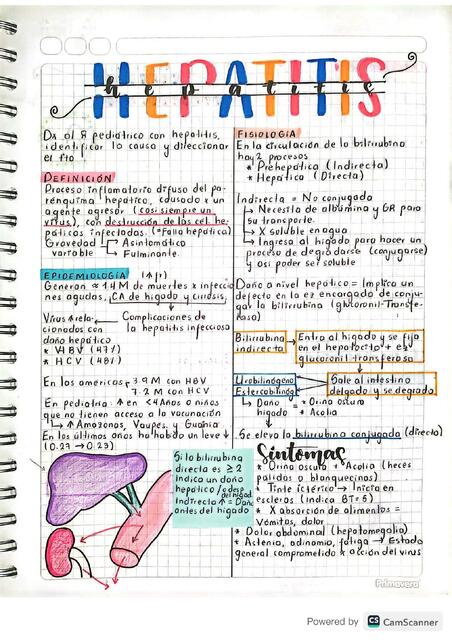 HEPATITIS
hepatitis
Dx al 8 pediátrico con hepatitis,
identificar la causa y direccionar
el tto
DEFINICIÓN
Proceso inflamatorio difuso del pa-
rénquima hepático, causado x un
agente agresor (casi siempre un
virus), con destrucción de las cel he-
páticas infectadas. (=Falla hepática)
Gravedad → Asintomático
variable → Fulminante.
EPIDEMIOLOGÍA (↑ fr)
Generan ≈ 1.4 M de muertes x infeccio
nes agudas, CA de hígado y cirrosis,
Virus rela-
cionados con
daño hepático
* VHBV (47%)
* HCV (48%)
Complicaciones de
la hepatitis infecciosa
En las americas → 3.9 M con HBV
7.2 M con HCV
En pediatría: ↑ en < 4 Años o niños
que no tienen acceso a la vacunación
↳ ↑ Amazonas, Vaupes y Guainía
En los últimos años ha habido un leve ↓
(0.27 → 0.23)
Si la bilirrubina
directa es ≥ 2
indica un daño
hepático / desp
del hígado
Indirecto ↑ = Daño
antes del hígado
FISIOLOGÍA
En la circulación de la bilirrubina
hay 2 procesos
* Prehepática (Indirecta)
* Hepática (Directa)
Indirecta = No conjugada
↳ Necesita de albúmina y GR para
su transporte.
↳ X soluble en agua
↳ Ingresa al hígado para hacer un
proceso de degradarse (conjugarse)
y así poder ser soluble
Daño a nivel hepático = Implica un
defecto en la ez encargada de conju-
gar la bilirrubina (glucoronil-Transfe-
rasa)
Bilirrubina indirecta → Entra al hígado y se fija
en el hepatocito + ez
glucoronil transferasa
Urobilinógeno
Estercobilinóg
Sale al intestino
delgado y se degrada
↳ Daño hígado
* Orina oscura
* Acolia
Se eleva la bilirrubina conjugada (directa)
Síntomas
* Orina oscura + Acolia (heces
pálidas o blanquecinas)
* Tinte ictérico → Inicia en
escleras (Indica BT = 5)
* X absorción de alimentos =
Vómitos, dolor
* Dolor abdominal (hepatomegalia)
* Astenia, adinamia, fatiga → Estado
general comprometido x acción del virus
Primavera
Powered by CS CamScanner